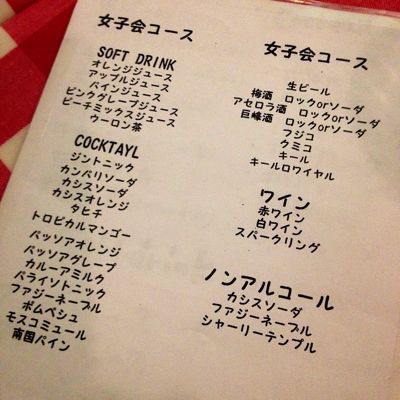 女子会コース
SOFT DRINK
オレンジジュース
アップルジュース
パインジュース
ピンクグレープジュース
ピーチミックスジュース
ウーロン茶
COCKTAYL
ジントニック
カンパリソーダ
カシスソーダ
カシスオレンジ
タヒチ
トロピカルマンゴー
パッソアオレンジ
パッソアグレープ
カルーアミルク
パライソトニック
ファジーネーブル
ボムペシュ
モスコミュール
南国パイン
女子会コース
生ビール
梅酒 ロックorソーダ
アセロラ酒 ロックorソーダ
巨峰酒 ロックorソーダ
フジコ
クミコ
キール
キールロワイヤル
ワイン
赤ワイン
白ワイン
スパークリング
ノンアルコール
カシスソーダ
ファジーネーブル
シャーリーテンプル